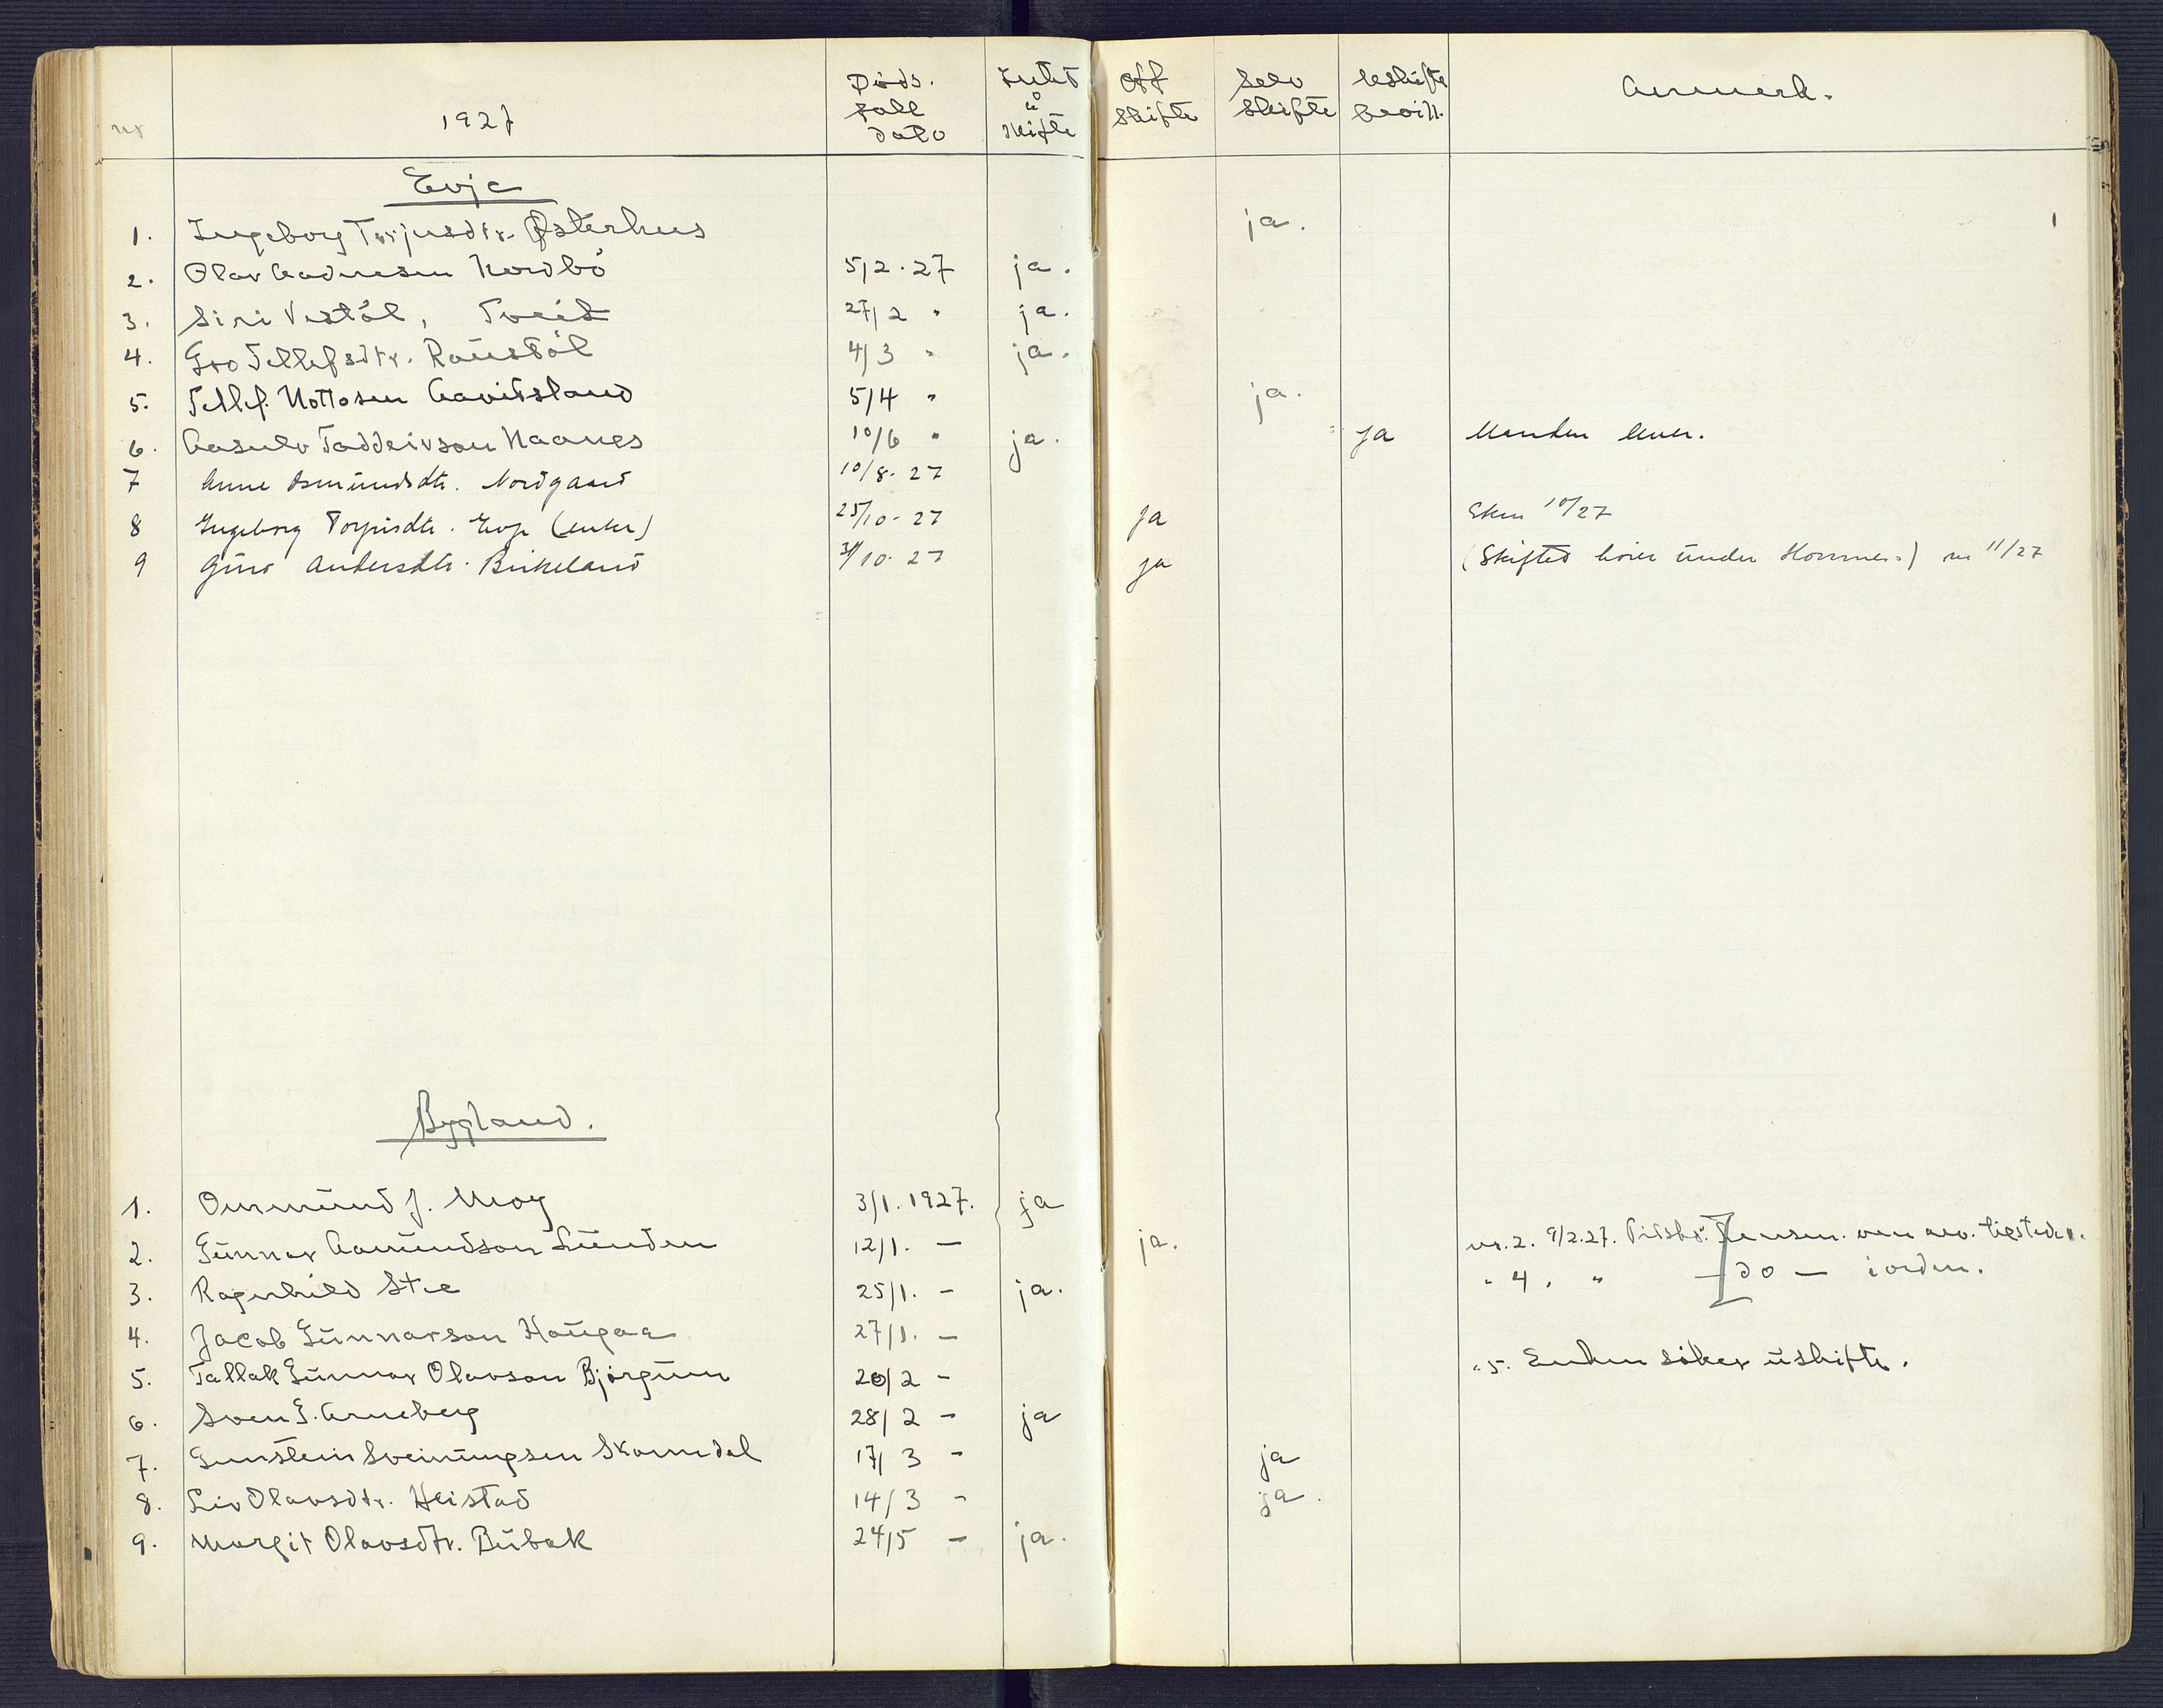 nr 1927 Døds. fall dato Intet å skifte Off skifte Selv skifte Uskifte bevill. Anmerk.
Evje
1. Ingeborg Torjusdtr. Østerhus ja. 1
2. Olav Aadnesen Nordbö 5/2.27 ja.
3. Siri Vestöl, Tveit 27/2 " ja.
4. Gro Tellefsdtr. Raustöl 4/3 " ja.
5. Tellef Nottosen Aavitsland 5/4 " ja.
6. Aasulv Taddeivson Haanes 10/6 " ja. ja
7 Anne Asmundsdtr. Nordgaard 10/8.27
8 Ingeborg Torjusdtr. Evje (enke) 25/10.27 ja 10/27
9 Andersdtr. Birkeland 31/10.27 ja (Skiftet hører under Hornnes.) nr 11/27
Bygland.
1. Ommund J. Moy 3/1.1927. ja
2. Gunnar Aamundson Lunden 12/1. — ja. nr. 2. 9/2.27.
3. Ragnhild Stie 25/1. — ja. " 4. " — do — jorden.
4. Jacob Gunnarson Haugaa 27/1. —
5. Tallak Gunnar Olavson Bjørgum 20/2 - " 5. Enken söker uskifte.
6. Sven G. Arneberg 28/2 - ja
7. Gunstein Sveinungsen Skomedal 17/3 - ja
8. Liv Olavsdtr. Heistad 14/3 - ja.
9. Margit Olavsdtr. Bubak 24/5 — ja.